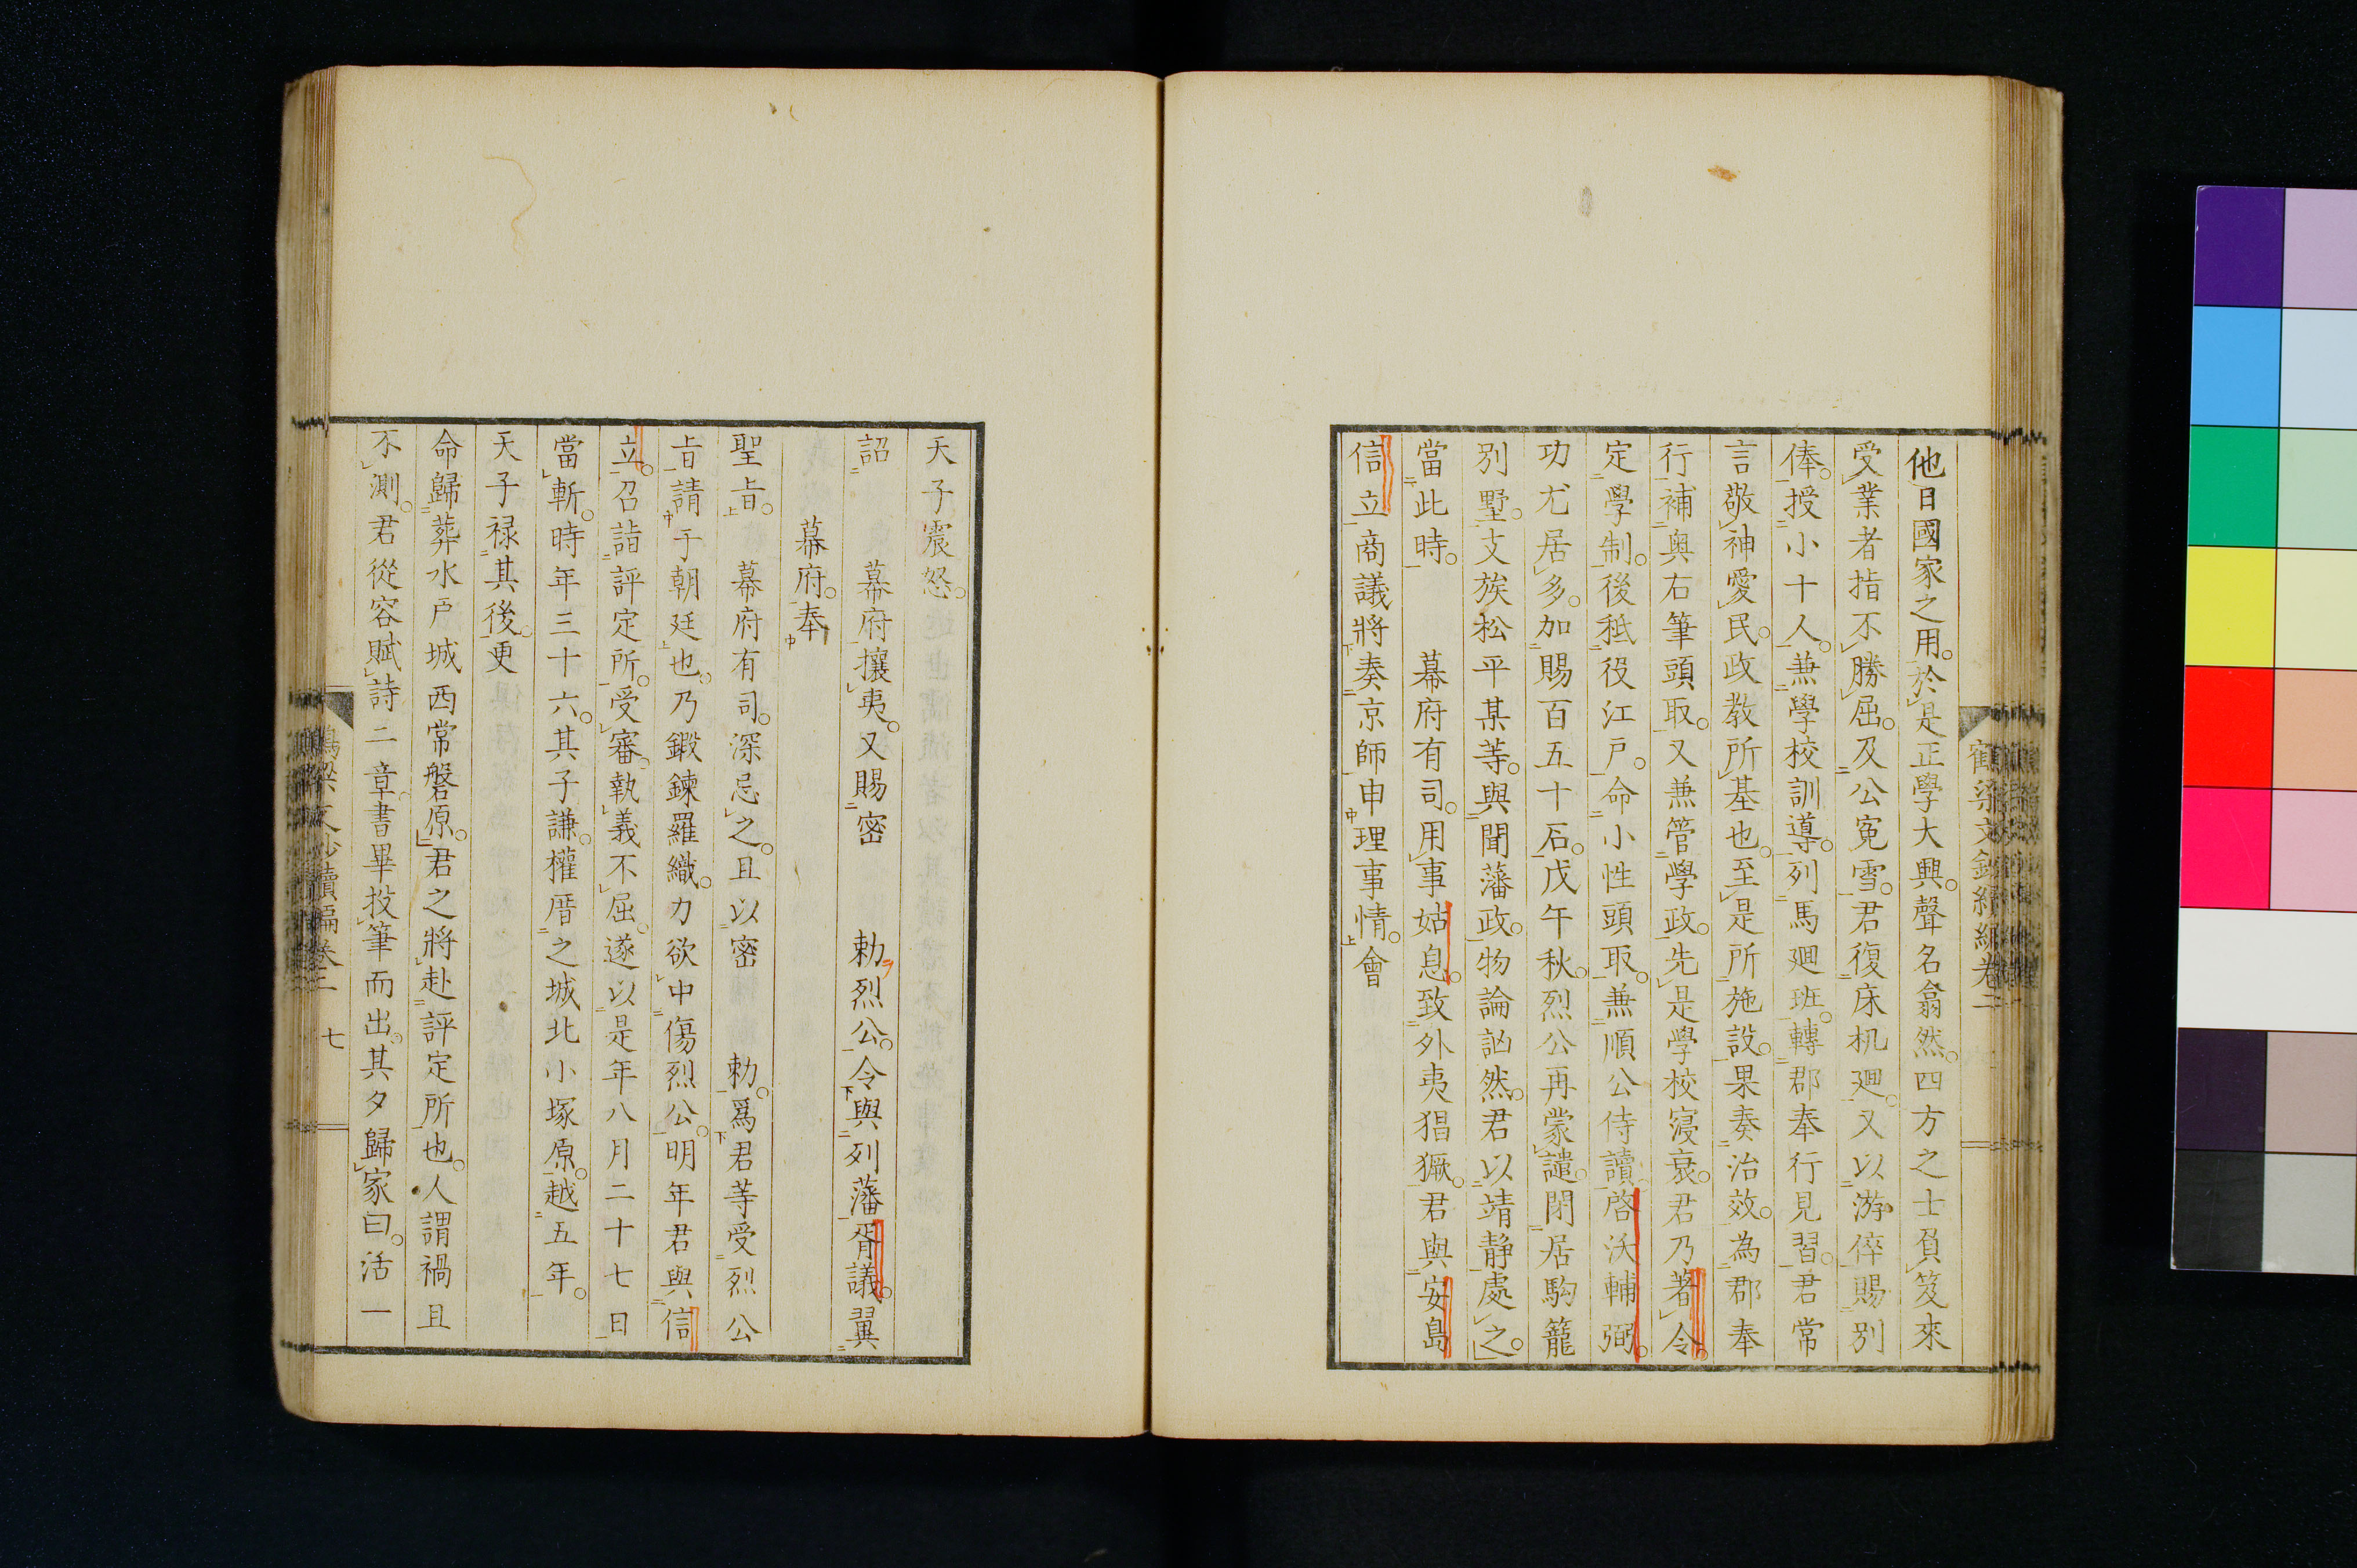 他日國家之用。於是正學大興。聲名翕然。四方之士負笈來
受業者指不勝屈。及公寃雪。君復床机廻。又以游倅賜別
俸。授小十人。兼學校訓導。列馬廻班。轉郡奉行見習。君常
言敬神愛民。政教所基也。至是所施設。果奏治效。為郡奉
行補奧右筆頭取。又兼管學政。先是學校寖衰。君乃著令。
定學制。後秪役江戸。命小性頭取。兼順公侍讀。啓沃輔弼。
功尤居多。加賜百五十石。戊午秋。烈公再蒙譴。閉居駒籠
別墅。支族松平某等。與聞藩政。物論訩然。君以靖静處之。
當此時。幕府有司。用事姑息。致外夷猖獗。君與安島
信立商議將奏京師申理事情。會
天子震怒。
詔幕府攘夷。又賜密勅烈公。令與列藩胥議。翼
幕府。奉
聖旨。幕府有司。深忌之。且以密勅。爲君等受烈公
旨請于朝廷也。乃鍛鍊羅織。力欲中傷烈公。明年君與信
立。召詣評定所。受審。執義不屈。遂以是年八月二十七日
當斬。時年三十六。其子謙。權厝之城北小塚原。越五年。
天子禄其後。更
命歸葬水戸城西常磐原。君之將赴評定所也。人謂禍且
不測。君從容賦詩二章書畢投筆而出。其夕歸家曰。活一
鶴梁文鈔續編卷二
七